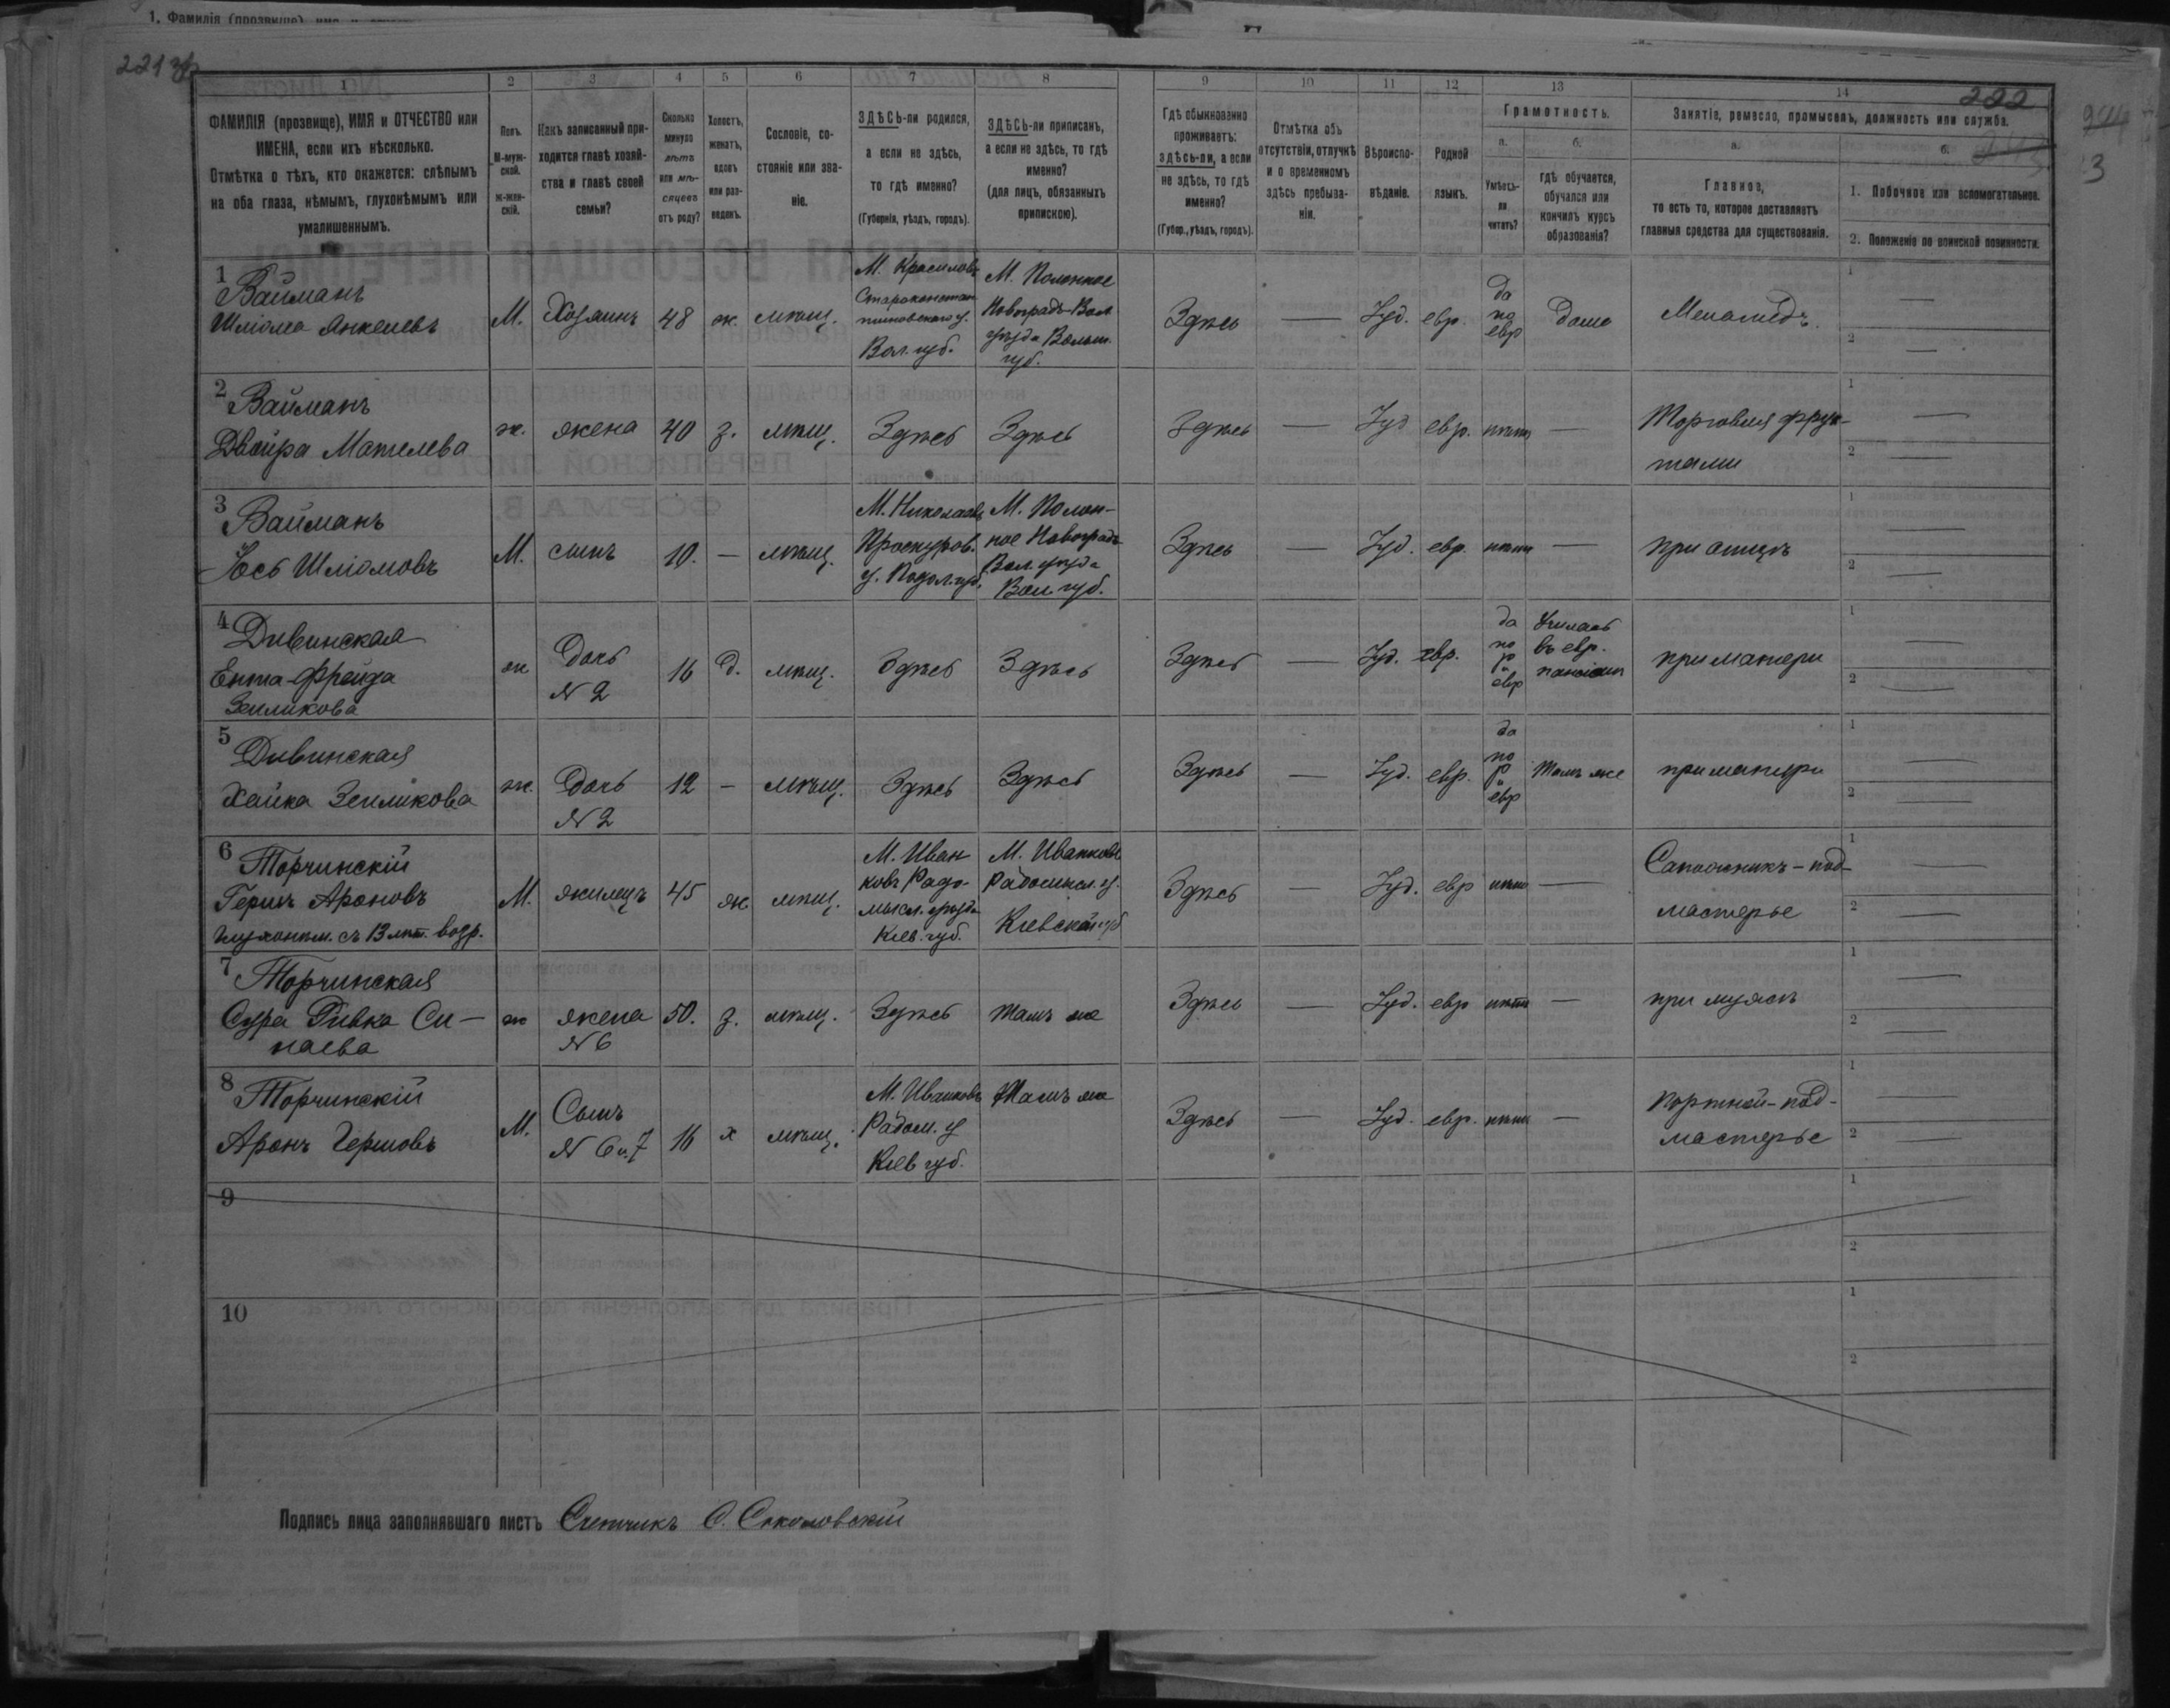 1. Фамилія (прозвище), имя и
221
222
3
1 2 3 4 5 6 7 8 9 10 11 12 13 14
ФАМИЛІЯ (прозвище), ИМЯ и ОТЧЕСТВО или
ИМЕНА, если ихъ нѣсколько.
Отмѣтка о тѣхъ, кто окажется: слѣпымъ
на оба глаза, нѣмымъ, глухонѣмымъ или
умалишеннымъ.
Полъ.
М-муж-
ской.
ж-жен-
скій.
Какъ записанный при-
ходится главѣ хозяй-
ства и главѣ своей
семьи?
Сколько
минуло
лѣтъ
или мѣ-
сяцевъ
отъ роду?
Холостъ,
женатъ,
вдовъ
или раз-
веденъ.
Сословіе, со-
стояніе или зва-
ніе.
ЗДѢСЬ-ли родился,
а если не здѣсь,
то гдѣ именно?
(Губернія, уѣздъ, городъ).
ЗДѢСЬ-ли приписанъ,
а если не здѣсь, то гдѣ
именно?
(для лицъ, обязанныхъ
припискою).
Гдѣ обыкновенно
проживаетъ:
здѣсь-ли, а если
не здѣсь, то гдѣ
именно?
(Губер., уѣздъ, городъ).
Отмѣтка объ
отсутствіи, отлучкѣ
и о временномъ
здѣсь пребыва-
ніи.
Вѣроиспо-
вѣданіе.
Родной
языкъ.
Грамотность.
а.
Умѣетъ-
ли
читать?
б.
гдѣ обучается,
обучался или
кончилъ курсъ
образованія?
Занятіе, ремесло, промыселъ, должность или служба.
а.
Главное,
то есть то, которое доставляетъ
главныя средства для существованія.
б.
1. Побочное или вспомогательное.
2. Положеніе по воинской повинности.
1
Вайманъ
Шліома Янкелевъ
М.
Хозяинъ
48
ж.
мѣщ.
М. Красиловъ
Староконстан
тиновского у.
Вол. губ.
М. Полонное
Новоградъ-Вол.
уѣзда Волын.
губ.
Здѣсь
—
Іуд.
евр.
да
по
евр
дома
Меламедъ.
1 —
2 —
2
Вайманъ
Двойра Мотелева
ж.
жена
40
з.
мѣщ.
Здѣсь
Здѣсь
Здѣсь
—
Іуд
евр.
нѣтъ
—
Торговля фрук-
тами
1 —
2 —
3
Вайманъ
Іось Шліомовъ
М.
сынъ
10.
—
мѣщ.
М. Николаевъ
Проскуров.
у. Подол. губ.
М. Полон-
ное Новоградъ
Вол. уѣзда
Вол губ.
Здѣсь
—
Іуд.
евр.
нѣтъ
—
при отцѣ
1 —
2 —
4
Дивинская
Ента-Фрейда
Зеиликова
ж
дочь
N 2
16
д.
мѣщ.
Здѣсь
Здѣсь
Здѣсь
—
Іуд.
евр.
да
по
р
и
евр
Училась
въ евр.
пансіонѣ
при матери
1 —
2 —
5
Дивинская
Хайка Зеиликова
ж.
дочь
N 2
12
—
мѣщ.
Здѣсь
Здѣсь
Здѣсь
—
Іуд.
евр.
да
по
р
и
евр
Тамъ же
при матери
1 —
2 —
6
Торчинскій
Гершъ Ароновъ
глухонѣм. съ 13 лѣт. возр.
М.
жилецъ
45
ж
мѣщ.
М. Иван
ковъ Радо-
мысл. уѣзда
Кіев. губ.
М. Иванковъ
Радомысл. у.
Кіевской губ
Здѣсь
—
Іуд.
евр
нѣтъ
—
Сапожникъ-под-
мастерье
1 —
2 —
7
Торчинская
Сура Ривка Си-
наева
ж
жена
N 6
50.
з.
мѣщ.
Здѣсь
Тамъ же
Здѣсь
—
Іуд.
евр
нѣтъ
—
при мужѣ
1 —
2 —
8
Торчинскій
Аронъ Гершовъ
М.
Сынъ
N 6 и 7
16
х
мѣщ.
М. Иванковъ
Радом. у
Кіев губ.
Тамъ же
Здѣсь
—
Іуд.
евр.
нѣтъ
—
портной-под-
мастерье
1 —
2 —
9
1
2
10
1
2
Подпись лица заполнявшаго листъ Счетчикъ С. Соколовскій